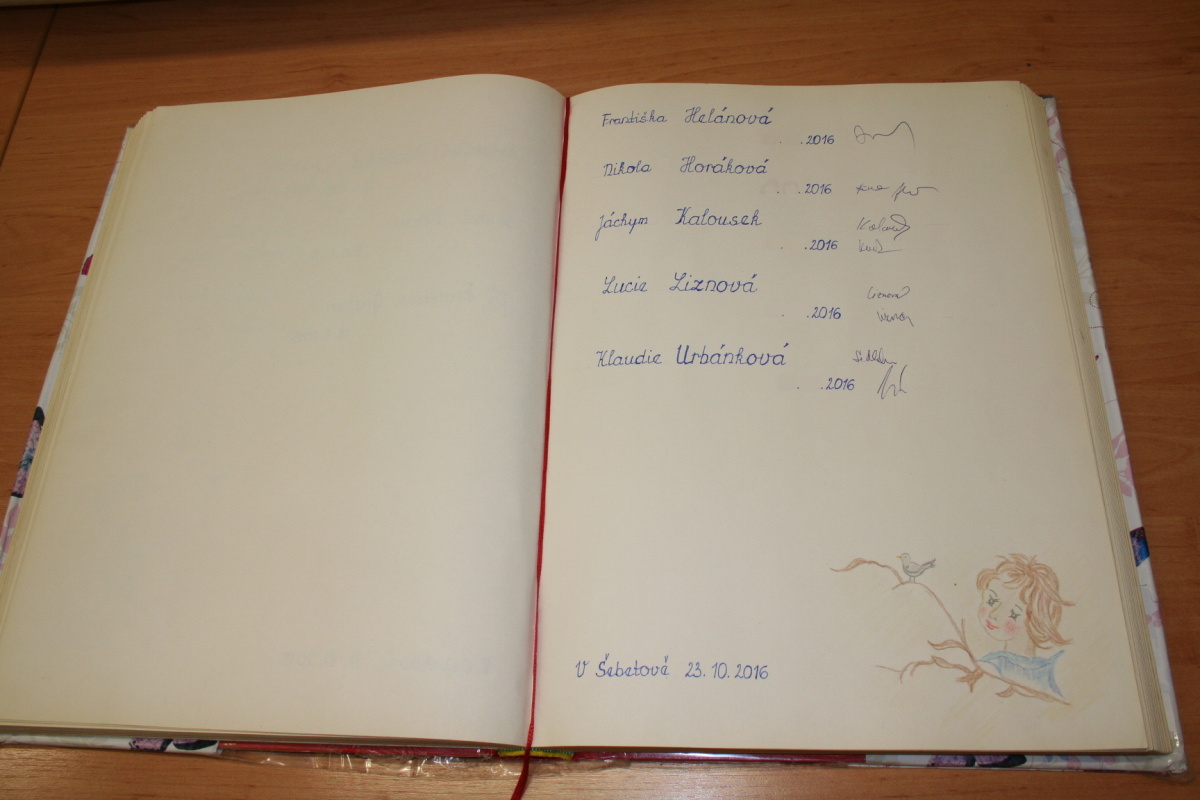 Františka Helánová
. .2016
Nikola Horáková
. .2016
Jáchym Kalousek
. .2016
Lucie Liznová
. .2016
Klaudie Urbánková
. .2016
V Šebetově 23.10.2016